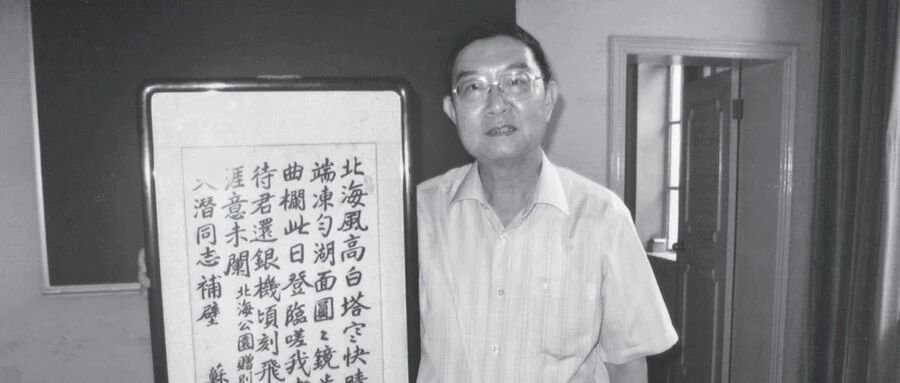 北海風高白塔寒快晴
端凍勻湖面圓〻鏡步
曲欄此日登臨嗟我
待君還銀機頃刻飛
涯意未闌 北海公園贈別
潛同志補壁
蘇